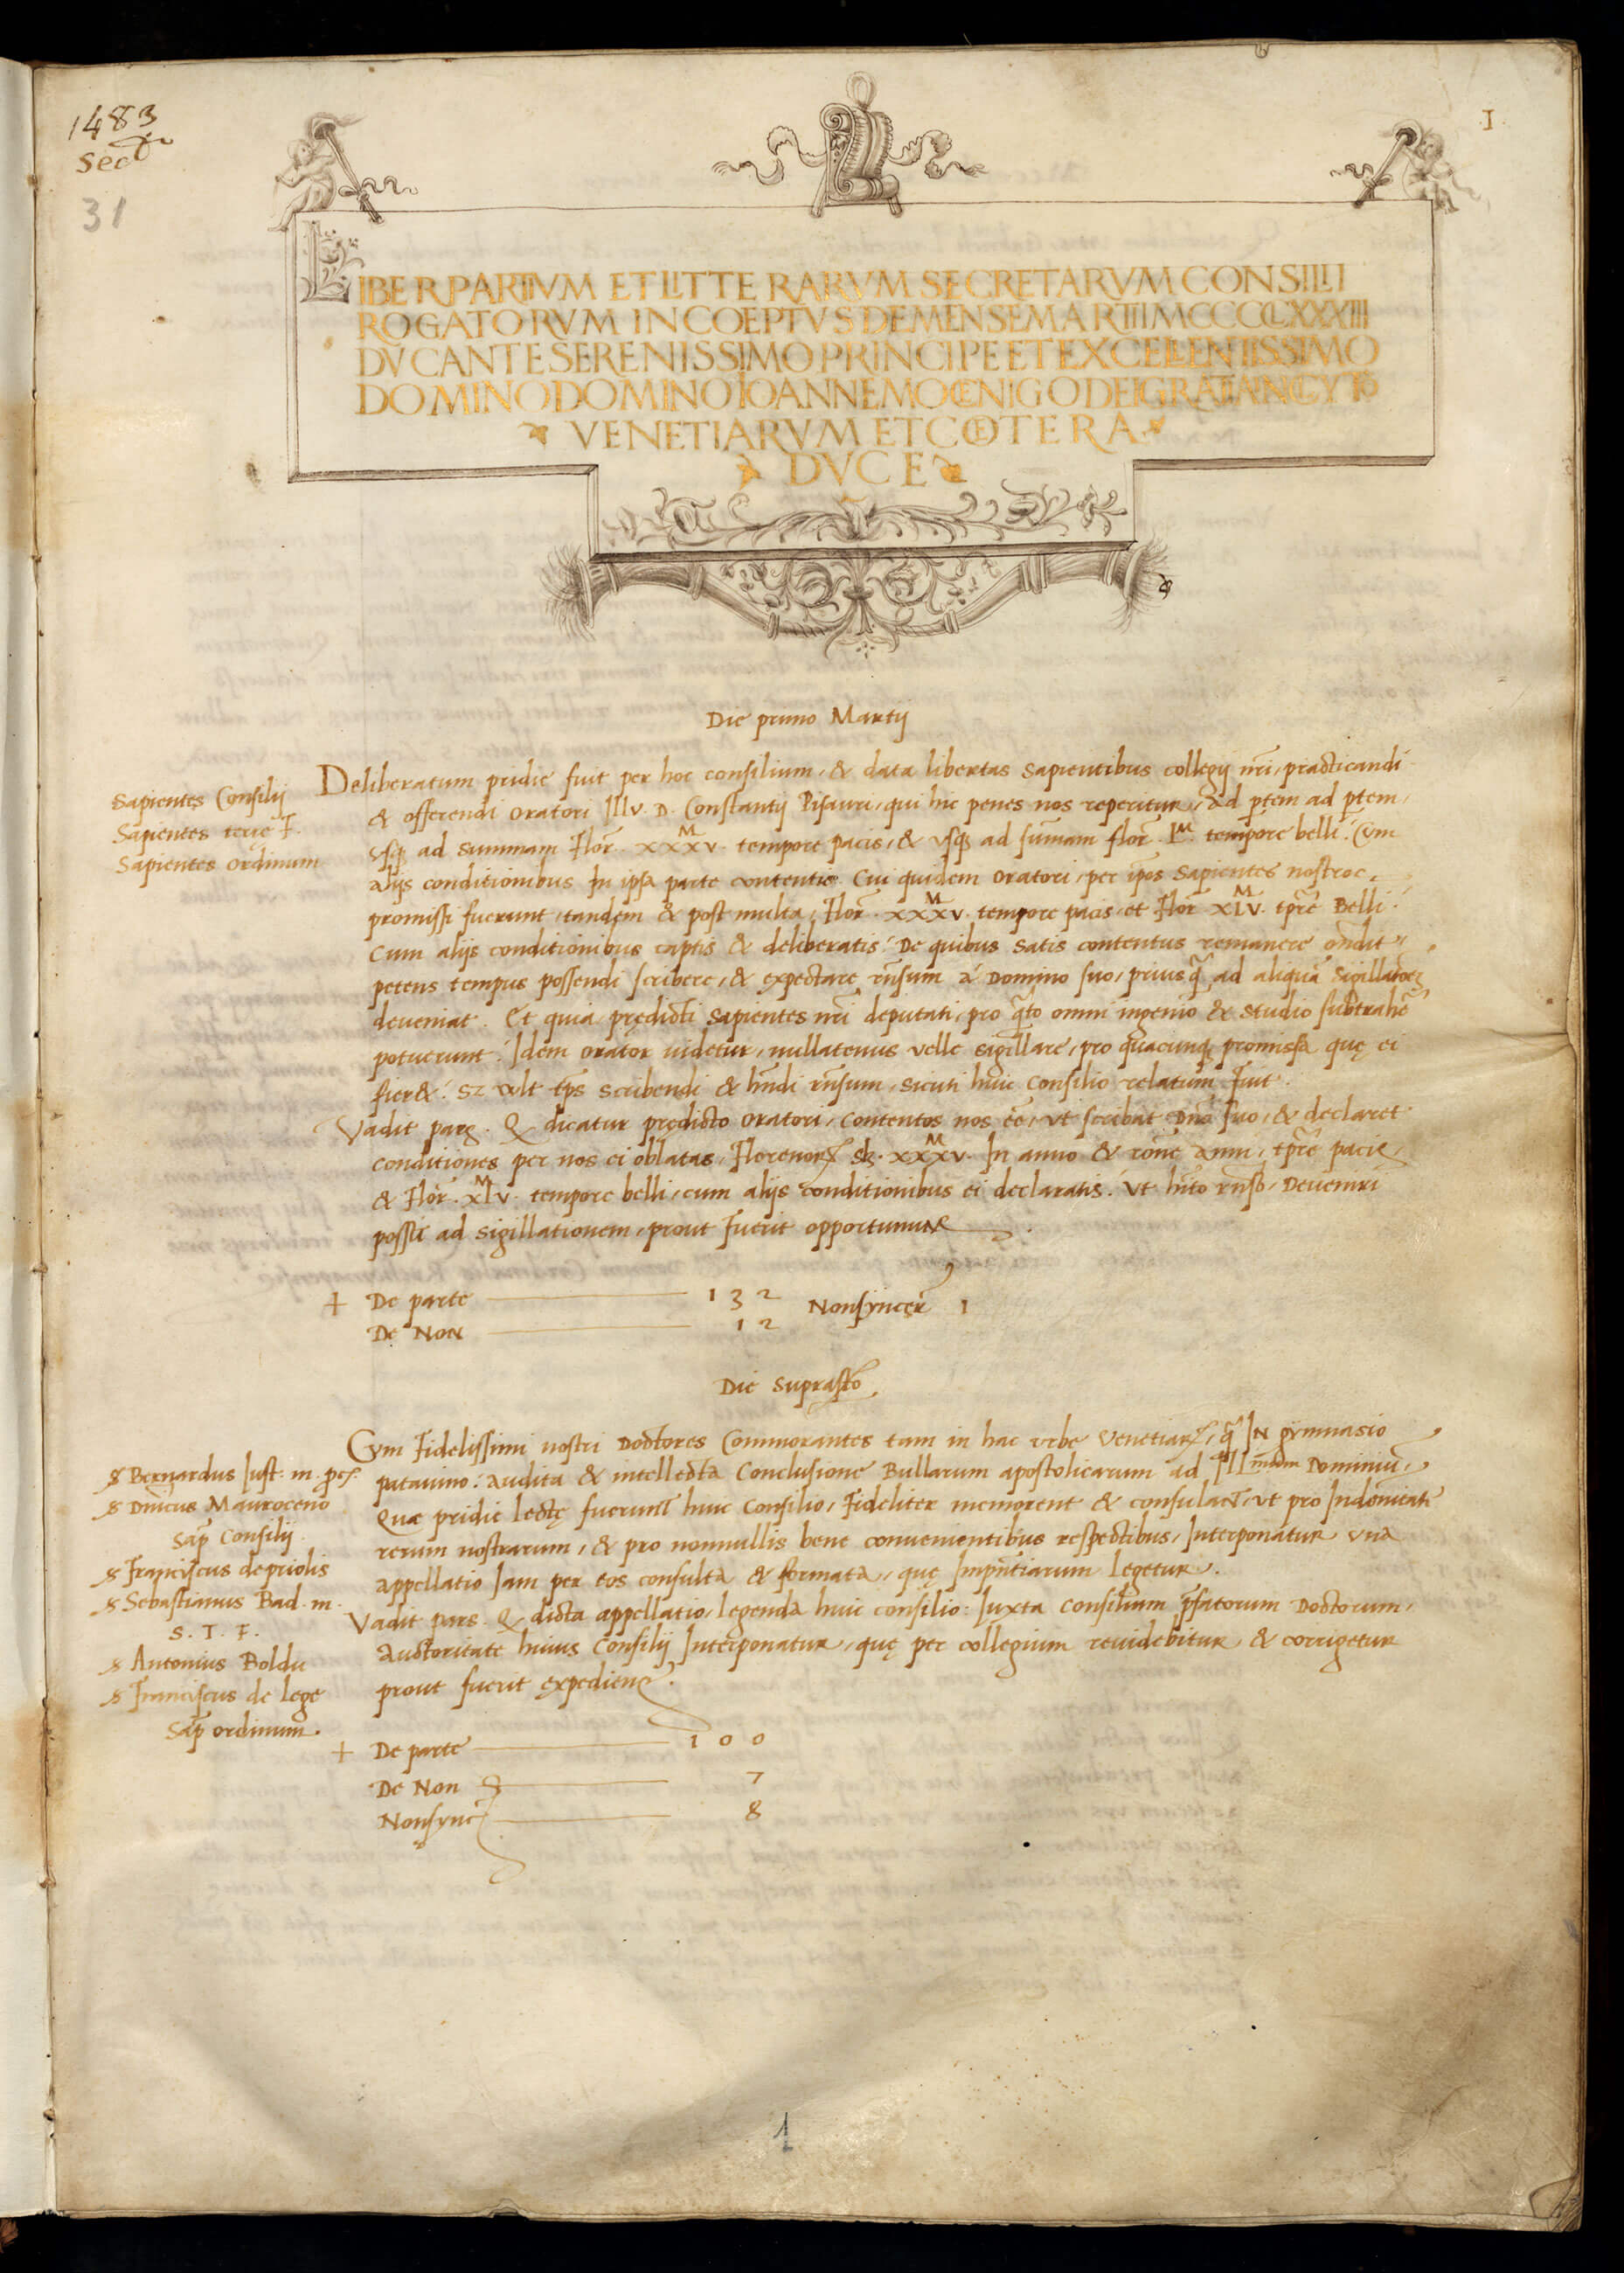 1483
Sec.ta
31
I
LIBER PARTIVM ET LITTERARVM SECRETARVM CONSILII
ROGATORVM INCOEPTVS DE MENSE MARTII MCCCCLXXXIII
DVCANTE SERENISSIMO PRINCIPE ET EXCELLENTISSIMO
DOMINO DOMINO IOANNE MOCENIGO DEI GRATIA INCLYTO
VENETIARVM ET COETERA
DVCE
Die primo Martij
Sapientes Consilij
Sapientes terre F.
Sapientes ordinum
Deliberatum pridie fuit per hoc consilium, & data libertas Sapientibus collegij nr̃i, practicandi
& offerendi oratori Illv. D. Constantij Pisauri, qui hic penes nos reperitur, ad ꝑtem ad ꝑtem,
vsq̃ ad summam Flor̃. XXXV.ᴹ tempore pacis, & vsq̃ ad sum̃am flor̃. L.ᴹ tempore belli: Cum
alijs conditionibus In ipsa parte contentis. Cui quidem oratori, per ip̃os Sapientes nostros,
promissi fuerunt, tandem & post multa, Flor̃. XXXV.ᴹ tempore pacis, et Flor̃ XLV.ᴹ tꝑre Belli.
Cum alijs conditionibus captis & deliberatis: De quibus satis contentus remanere ondit,
petens tempus possendi scribere, & expectare rñsum à Domino suo, priusq̃ ad aliquã sigillatõez
deveniat. Et quia prędicti Sapientes nr̃i deputati, pro q̃to omni ingenio & studio subtrahẽ
potuerunt: Idem orator uidetur, nullatenus velle sigillare, pro quacunq̃ promissa quę ei
fier&: Sz vult tp̃s scribendi & hñdi rñsum, sicuti huic Consilio relatum fuit.
Vadit pars. Q dicatur prędicto oratori, contentos nos ẽe, vt scribat Dño suo, & declaret
conditiones per nos ei oblatas, Florenoꝝ sz. XXXV.ᴹ In anno & rõne anni, tꝑre pacis,
& Flor̃. XLV.ᴹ tempore belli, cum alijs conditionibus ei declaratis. Vt hĩto rñso, Deveniri
possit ad sigillationem, prout fuerit opportunum.
+ De parte 132 Nonsyncer̃ 1
De Non 12
Die suprasc̃to
& Bernardus Iust. m. pc̃.
& Dñicus Mauroceno
Sap̃ Consilij
& Franciscus de priolis
& Sebastianus Bad. m.
S. T. F.
& Antonius Boldu
& Franciscus de lege
Sap̃ ordinum.
Cvm Fidelissimi nostri Doctores Commorantes tam in hac vrbe Venetiaꝝ, q̃ In gymnasio
patauino: audita & intellecta Conclusione Bullarum apostolicarum ad Ill.mum Dominiũ,
Quæ pridie lectę fuerunt huic Consilio, Fideliter memorent & consulant, vt pro Indẽnitate
rerum nostrarum, & pro nonnullis bene convenientibus respectibus, Interponatur vna
appellatio Iam per eos consulta & formata, quę Impñtiarum legetur.
Vadit pars. Q dicta appellatio, legenda huic consilio: Iuxta Consilium p̃fatorum Doctorum,
Auctoritate huius Consilij Interponatur, quę per collegium reuidebitur & corrigetur
prout fuerit expediens.
+ De parte 100
De Non 7
Nonsync̃ 8
1